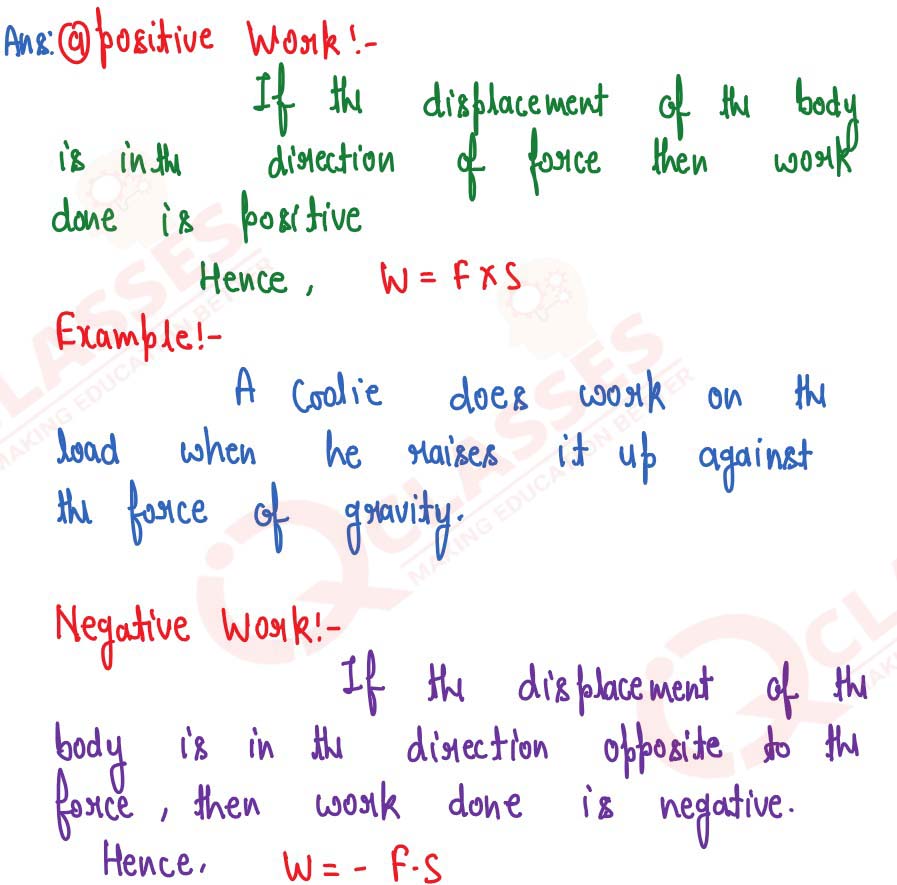 Ans: (a) positive Work!-
If the displacement of the body
is in the direction of force then work
done is positive
Hence, W = F × S
Example!-
A Coolie does work on the
load when he raises it up against
the force of gravity.
Negative Work!-
If the displacement of the
body is in the direction opposite to the
force, then work done is negative.
Hence, W = - F.S
CLASSES
MAKING EDUCATION BETTER
CLASSES
MAKING EDUCATION BETTER